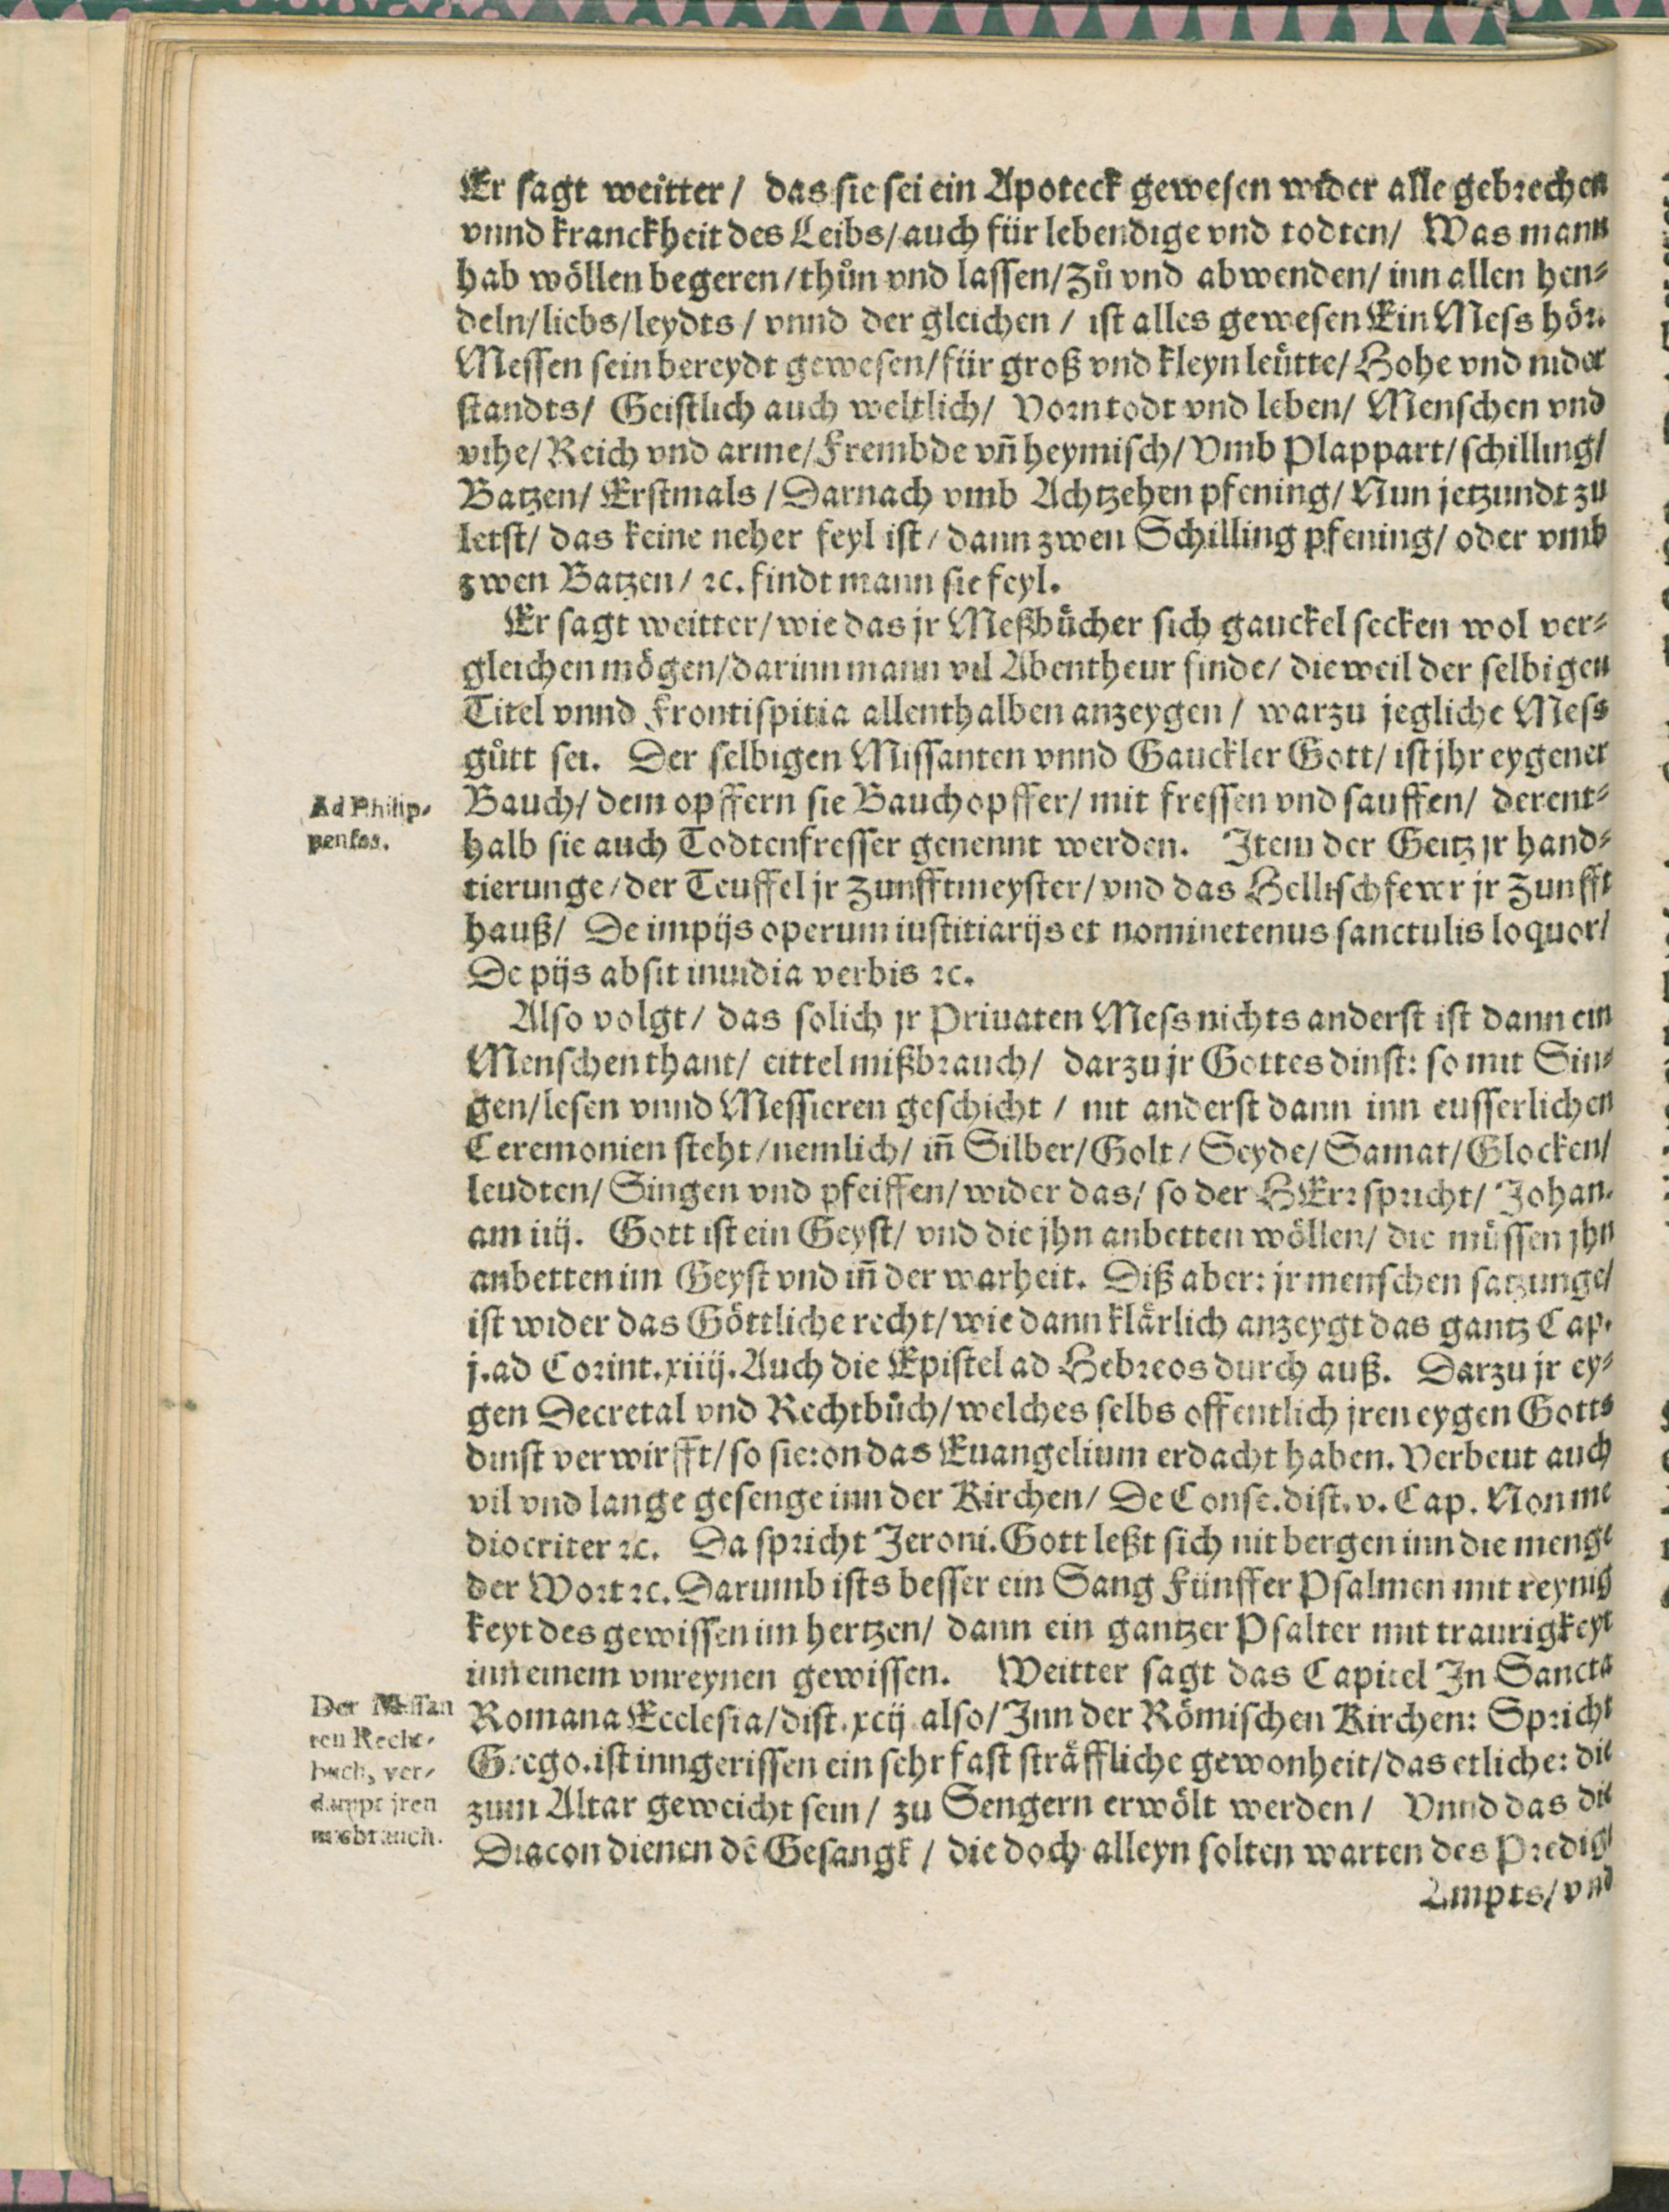 Er sagt weitter / das sie sei ein Apoteck gewesen wider alle gebrechen
vnnd kranckheit des Leibs / auch für lebendige vnd todten / Was mann
hab wöllen begeren / thůn vnd lassen / Zů vnd abwenden / inn allen hen⸗
deln / liebs / leydts / vnnd der gleichen / ist alles gewesen Ein Mess hör.
Messen sein bereydt gewesen / für groß vnd kleyn leütte / Hohe vnd nider
standts / Geistlich auch weltlich / Vorn todt vnd leben / Menschen vnd
vihe / Reich vnd arme / Frembde vñ heymisch / Vmb Plappart / schilling /
Batzen / Erstmals / Darnach vmb Achtzehen pfening / Nun jetzundt zu
letst / das keine neher feyl ist / dann zwen Schilling pfening / oder vmb
zwen Batzen / ꝛc. findt mann sie feyl.
Er sagt weitter / wie das jr Meßbücher sich gauckel secken wol ver⸗
gleichen mögen / darinn mann vil Abentheur finde / die weil der selbigen
Titel vnnd Frontispitia allenthalben anzeygen / warzu jegliche Mess
gůtt sei. Der selbigen Missanten vnnd Gauckler Gott / ist jhr eygener
Ad Philip-
penses.
Bauch / dem opffern sie Bauchopffer / mit fressen vnd sauffen / derent⸗
halb sie auch Todtenfresser genennt werden. Item der Geitz jr hand⸗
tierunge / der Teuffel jr Zunfftmeyster / vnd das Hellisch fewr jr Zunfft
hauß / De impijs operum iustitiarijs et nominetenus sanctulis loquor /
De pijs absit inuidia verbis ꝛc.
Also volgt / das solich jr Priuaten Mess nichts anderst ist dann ein
Menschen thant / eittel mißbrauch / darzu jr Gottes dinst: so mit Sin⸗
gen / lesen vnnd Messieren geschicht / nit anderst dann inn eusserlichen
Ceremonien steht / nemlich / iñ Silber / Golt / Seyde / Samat / Glocken /
leudten / Singen vnd pfeiffen / wider das / so der HErr spricht / Johan.
am iiij. Gott ist ein Geyst / vnd die jhn anbetten wöllen / die müssen jhn
anbetten im Geyst vnd iñ der warheit. Diß aber: jr menschen satzunge /
ist wider das Göttliche recht / wie dann klärlich anzeygt das gantz Cap.
j. ad Corint. xiiij. Auch die Epistel ad Hebreos durch auß. Darzu jr ey⸗
gen Decretal vnd Rechtbůch / welches selbs offentlich jren eygen Gotts
dinst verwirfft / so sie: on das Euangelium erdacht haben. Verbeut auch
vil vnd lange gesenge inn der Kirchen / De Conse. dist. v. Cap. Non me
diocriter ꝛc. Da spricht Jeroni. Gott leßt sich nit bergen inn die menge
der Wort ꝛc. Darumb ists besser ein Sang Fünffer Psalmen mit reynig
keyt des gewissen im hertzen / dann ein gantzer Psalter mit traurigkeyt
inn einem vnreynen gewissen. Weitter sagt das Capitel In Sancta
Der Missan
ten Recht-
buch, ver-
dampt jren
misbrauch.
Romana Ecclesia / dist. xcij also / Inn der Römischen Kirchen: Spricht
Grego. ist inngerissen ein sehr fast sträffliche gewonheit / das etliche: die
zum Altar geweicht sein / zu Sengern erwölt werden / Vnnd das die
Diacon dienen dẽ Gesangk / die doch alleyn solten warten des Predig
Ampts / vnd